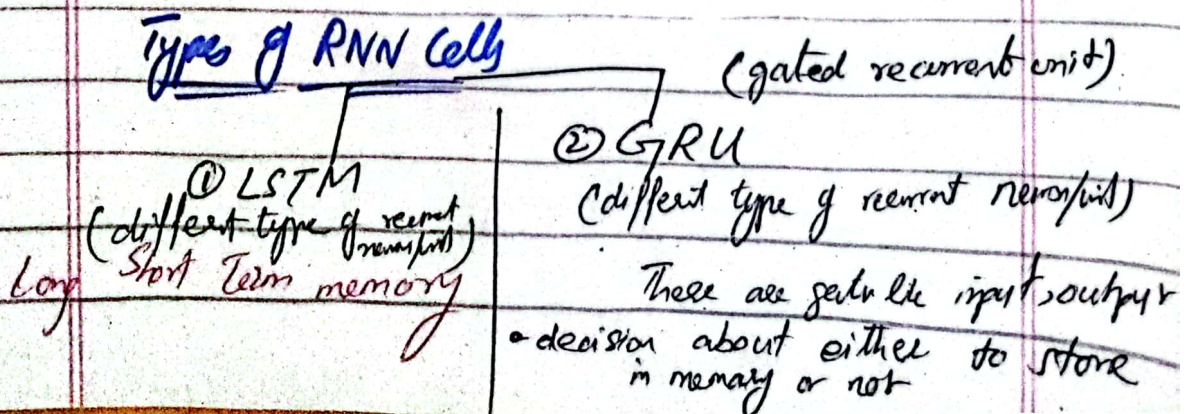 Types of RNN Cells
(gated recurrent unit)
① LSTM
(different type of recurrent neuron/unit)
Long Short Term memory
② GRU
(different type of recurrent neuron/unit)
There are like input, output
• decision about either to store
in memory or not